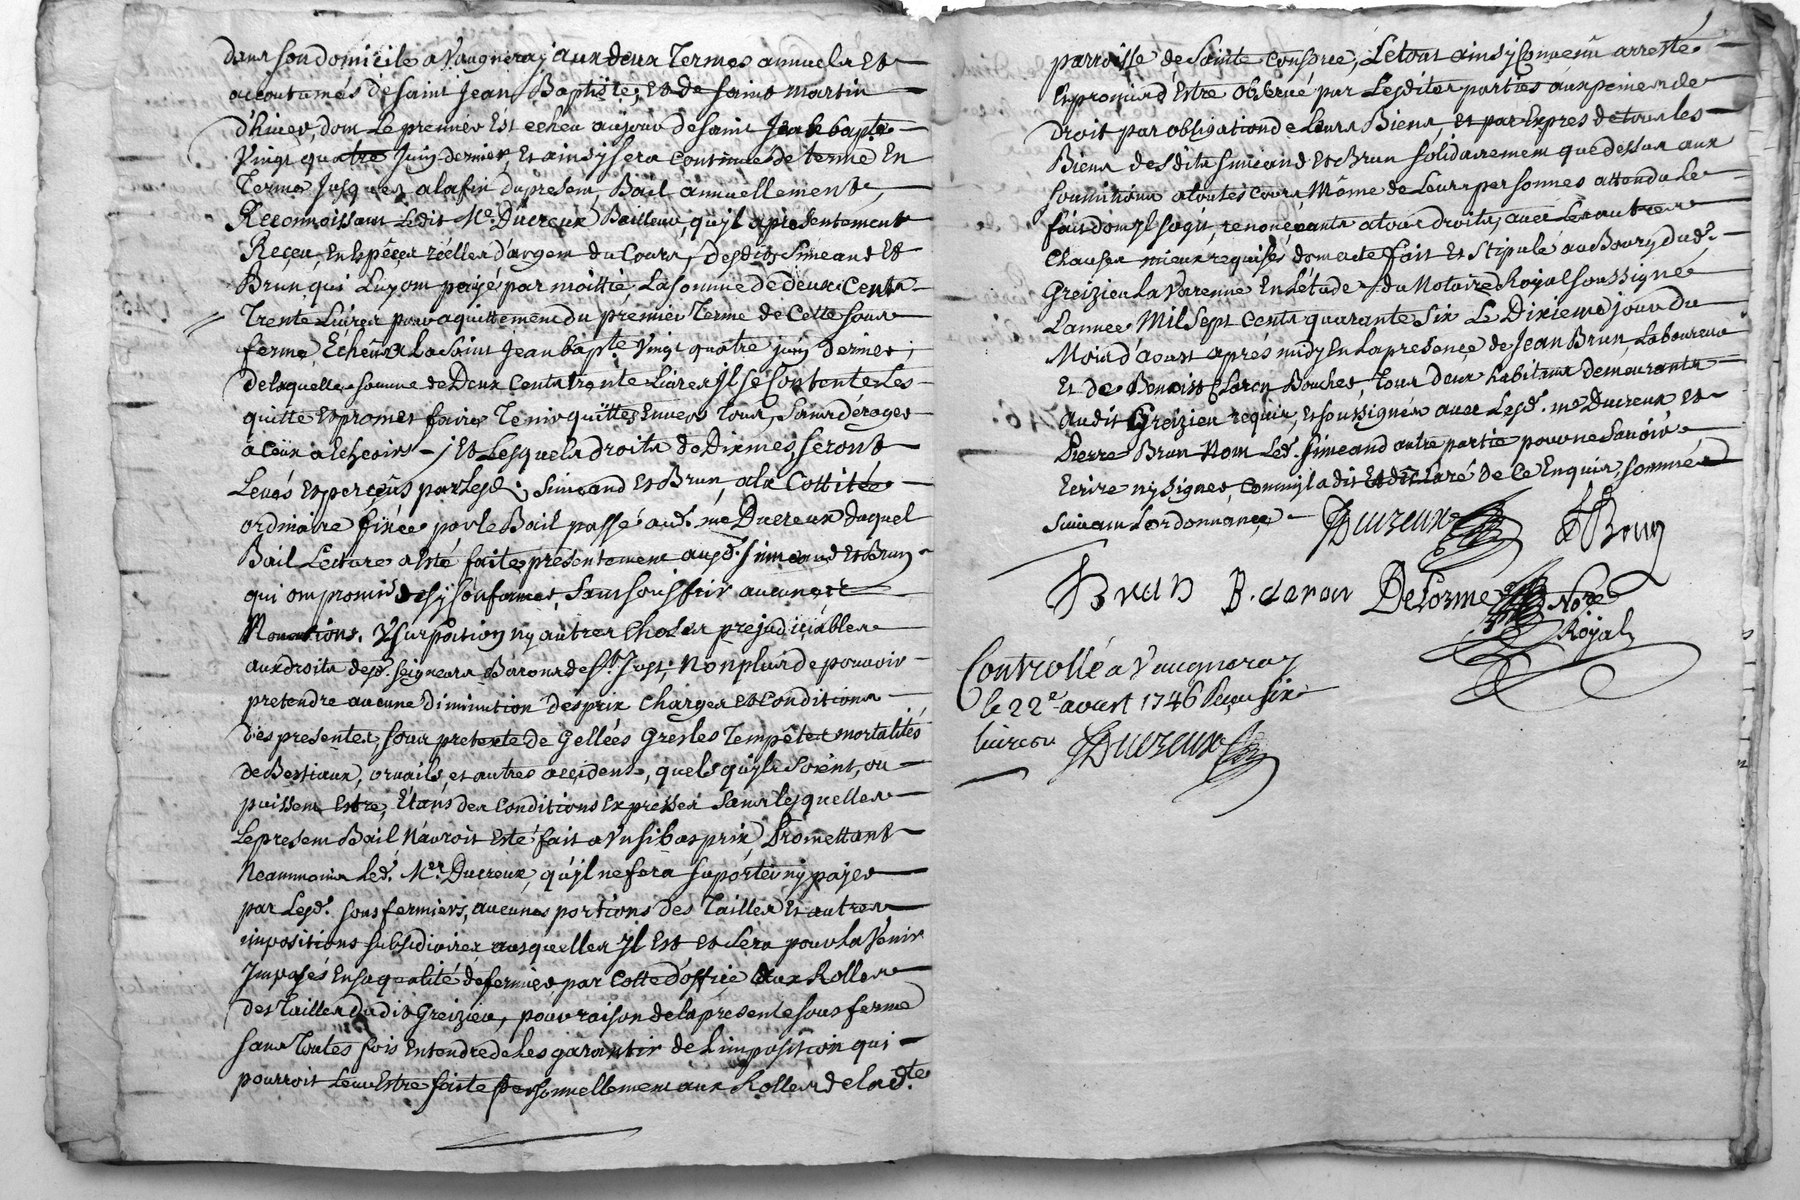 dans son domicile a Vaugneray aux deux Termes annuels Et
accoutumés de saint Jean Baptiste, Et de saint Martin
d'hiver, dont Le premier Est echeu aujour de saint Jean bapte
Vingt quatre Juin dernier, Et ainsy sera Continué de terme En
Terme Jusques a la fin du present Bail annuellement,
Reconnoissant Ledit Me. Ducreux Bailleur, qu'yl a presentement
Reçeu, En Espéçes réelles d'argent du Cours, desdits Simeand Et
Brun qui Luy ont payé par moittié La somme de deux Cents
Trente Livres pour aquittement du premier Terme de Cette sous
ferme Echeu a La saint Jean bapte. Vingt quatre juin dernier;
de laquelle somme de Deux Cents trente Livres Jl se Contente Les
quitte Et promet faire Tenir quittes Envers Tous, sans déroger
a Ceux a Echeoir; Et Lesquels droits de Dixmes, seront
Levés Et perçeus par Lesd. Simeand Et Brun, a la Cottité
ordinaire fixée par le Bail passé aud. me Ducreux duquel
Bail Lecture a Esté faite presentement ausd. Simeand Et Brun
qui ont promis de s'y Conformer, sans souffrir aucunes
Novations, Vsurpation ny autres Choses prejudiciables
aux droits desd. seigneurs Barons de St. Just; Non plus de pouvoir
pretendre aucune Diminution des prix Charges et Conditions
des presentes, sous pretexte de Gellées Gresles Tempêtes mortalités
de Bestiaux, orvails, et autres accidents, quels qu'yls soient, ou
puissent Estre, Etans des Conditions Expresses sans lesquelles
Le present Bail N'auroit Esté fait a Vn si bas prix, Promettant
Neanmoins Led. Mer. Ducreux, qu'yl ne fera suporter ny payer
par Lesd. sous fermiers, aucunes portions des Tailles Et autres
impositions subsidiaires ausquelles Jl Est et sera pour La Venir
Jmposés En sa qualité de fermier par Cotte d'office aux Rolles
des Tailles dudit Greizieu, pour raison de la presente sous ferme
sans Toutes fois Entendre de Les garantir de L'imposition qui
pourroit Leur Estre faite personnellement aux Rolles de lade.
parroisse de Sainte Consorce, Le tout ainsy Convenu arresté
Et promis d'Estre observé par Lesdites parties aux peines de
droit par obligation de Leurs Biens, Et par Expres de tous les
Biens desdits Simeand Et Brun solidairement que dessus aux
soumissions a toutes Cours Même de Leurs personnes attendu Le
fait dont yl s'agit, renonçants a tous droits, avec Les autres
Clauses mieux requises, dont acte fait Et Stipulé au Bourg dud.
Greizieu La Varenne En L'étude du Notaire Royal soussigné
L'annee Mil Sept Cents quarante six Le Dixieme jour du
Mois d'aoust aprés midy En La presence de Jean Brun Laboureur
Et de Benoist Caron Boucher, Tous deux habitans demeurants
audit Greizieu requis, Et soussignés avec Lesd. me Ducreux et
Pierre Brun Non Led. Simeand autre partie pour ne Savoir
Ecrire ny signer, comm'yl a dit Et déclaré de Ce Enquis, sommés
Suivant L'ordonnançe. Ducreux P Brun
J Brun B. Caron Delorme Nore
Royal
Controllé a Vaugneray
le 22e. aoust 1746 Reçeu six
livres Ducreux